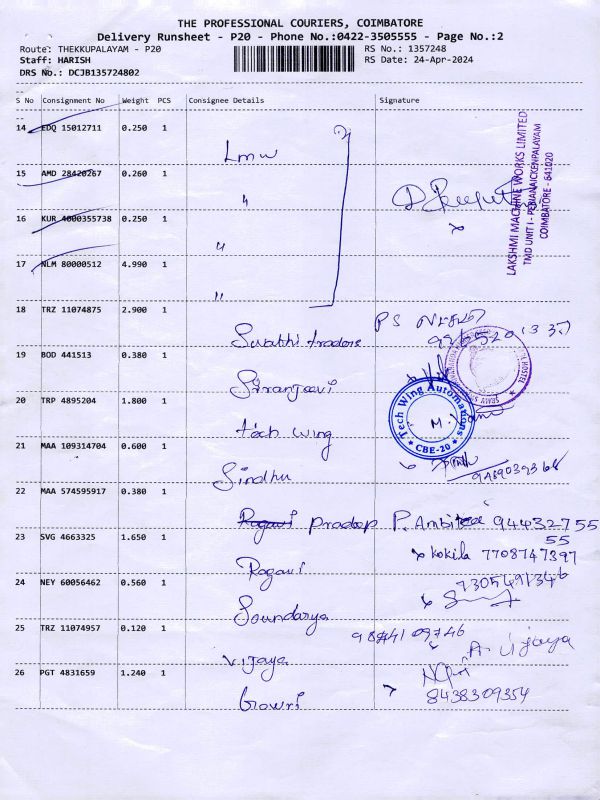 THE PROFESSIONAL COURIERS, COIMBATORE
Delivery Runsheet - P20 - Phone No.:0422-3505555 - Page No.:2
Route: THEKKUPALAYAM - P20 RS No.: 1357248
Staff: HARISH RS Date: 24-Apr-2024
DRS No.: DCJB135724802
S No Consignment No Weight PCS Consignee Details Signature
14 EDQ 15012711 0.250 1 Lmw
15 AMD 28420267 0.260 1 "
16 KUR 4000355738 0.250 1 "
17 NLM 80000512 4.990 1 "
LAKSHMI MACHINE WORKS LIMITED
TMD UNIT I - PERIANAICKENPALAYAM
COIMBATORE - 641020
18 TRZ 11074875 2.900 1 Surabhi traders PS
19 BOD 441513 0.380 1 Siranjeevi
HOSTEL
20 TRP 4895204 1.800 1 tech wing
Tech Wing Automations
CBE-20
21 MAA 109314704 0.600 1 Sindhu
22 MAA 574595917 0.380 1 Ragavi pradeep P. 94432755
55
23 SVG 4663325 1.650 1 Ragavi kokila 7708747397
24 NEY 60056462 0.560 1 Soundarya 7305491346
25 TRZ 11074957 0.120 1 Vijaya A. Vijaya
26 PGT 4831659 1.240 1 Gowri 8438309354